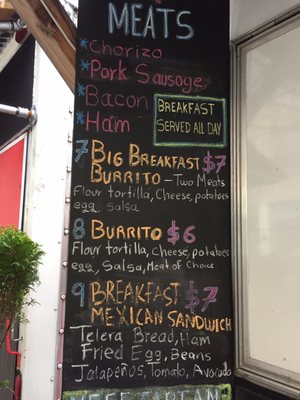 MEATS
*Chorizo
*Pork Sausage
*Bacon
*Ham
BREAKFAST
SERVED ALL DAY
7 BIG BREAKFAST $7
BURRITO - TWO MEATS
Flour tortilla, Cheese, potatoes
egg, Salsa
8 BURRITO $6
Flour tortilla, Cheese, potatoes
egg, Salsa, Meat of Choice
9 BREAKFAST $7
MEXICAN SANDWICH
Telera Bread, Ham
Fried Egg, Beans
Jalapeños, Tomato, Avocado
VEGETARIAN